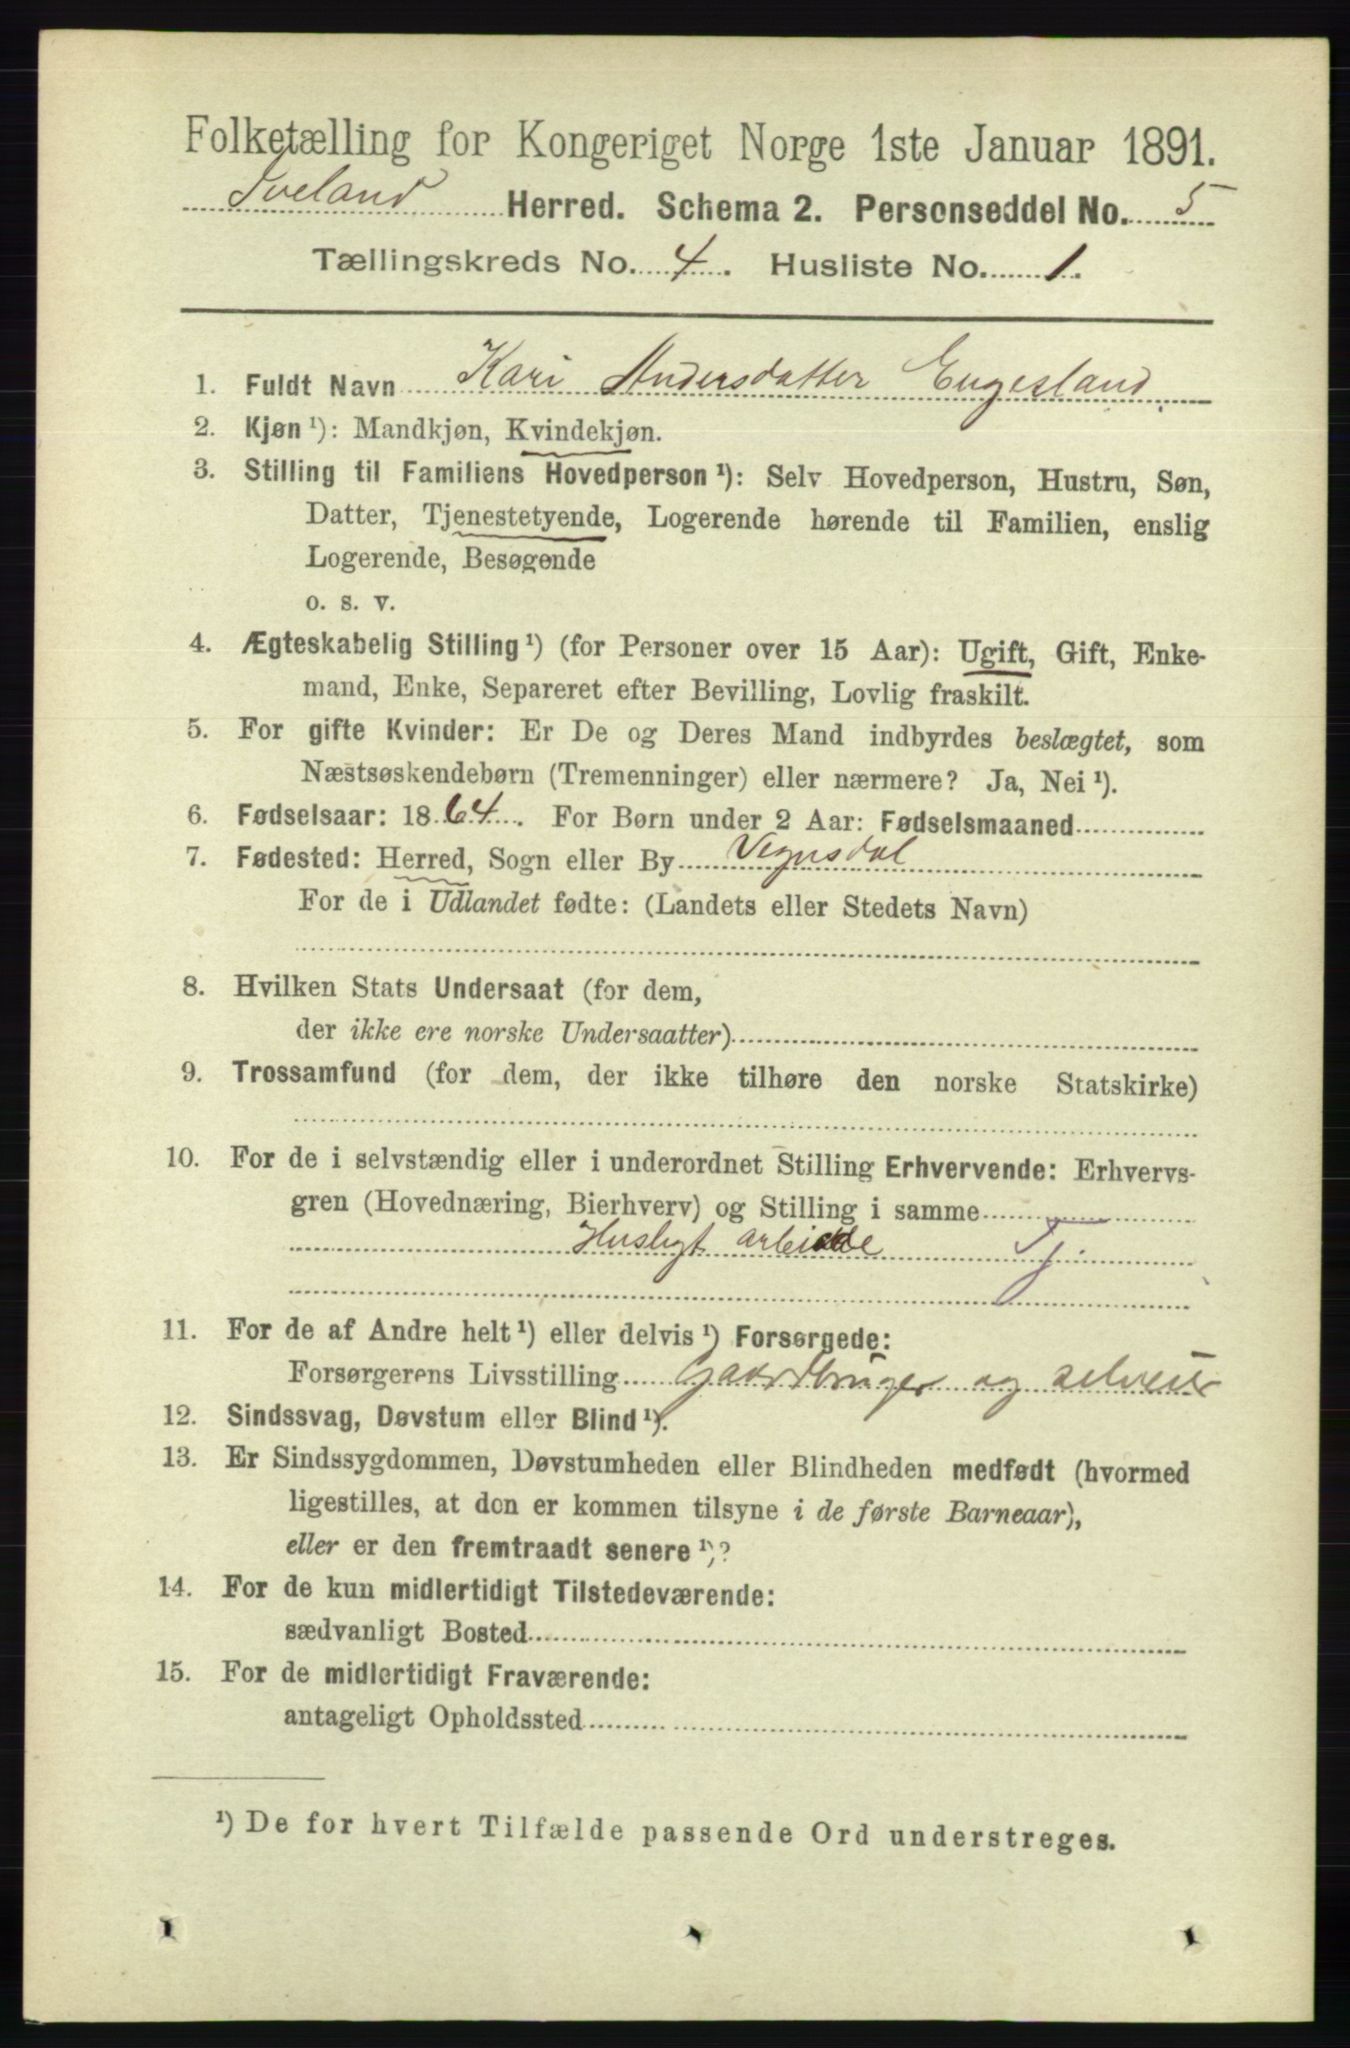 Folketælling for Kongeriget Norge 1ste Januar 1891.
Iveland Herred. Schema 2. Personseddel No. 5
Tællingskreds No. 4. Husliste No. 1.
1. Fuldt Navn Kari Andersdatter Engesland
2. Kjøn ¹): Mandkjøn, Kvindekjøn.
3. Stilling til Familiens Hovedperson ¹): Selv Hovedperson, Hustru, Søn,
Datter, Tjenestetyende, Logerende hørende til Familien, enslig
Logerende, Besøgende
o. s. v.
4. Ægteskabelig Stilling ¹) (for Personer over 15 Aar): Ugift, Gift, Enke-
mand, Enke, Separeret efter Bevilling, Lovlig fraskilt.
5. For gifte Kvinder: Er De og Deres Mand indbyrdes beslægtet, som
Næstsøskendebørn (Tremenninger) eller nærmere? Ja, Nei ¹).
6. Fødselsaar: 1864. For Børn under 2 Aar: Fødselsmaaned
7. Fødested: Herred, Sogn eller By Vegusdal
For de i Udlandet fødte: (Landets eller Stedets Navn)
8. Hvilken Stats Undersaat (for dem,
der ikke ere norske Undersaatter)
9. Trossamfund (for dem, der ikke tilhøre den norske Statskirke)
10. For de i selvstændig eller i underordnet Stilling Erhvervende: Erhvervs-
gren (Hovednæring, Bierhverv) og Stilling i samme
Husligt arbeide Tj.
11. For de af Andre helt ¹) eller delvis ¹) Forsørgede:
Forsørgerens Livsstilling gaardbruger og selveier
12. Sindssvag, Døvstum eller Blind ¹).
13. Er Sindssygdommen, Døvstumheden eller Blindheden medfødt (hvormed
ligestilles, at den er kommen tilsyne i de første Barneaar),
eller er den fremtraadt senere ¹)?
14. For de kun midlertidigt Tilstedeværende:
sædvanligt Bosted
15. For de midlertidigt Fraværende:
antageligt Opholdssted
¹) De for hvert Tilfælde passende Ord understreges.